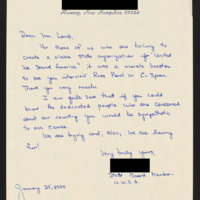 Henniey, New Hampshire 03242
Dear Mr. Lamb,
For those of us who are trying to
create a viable state organization for "United
We Stand America" it was a morale booster
to see you interview Ross Perot on C-Span.
Thank you very much.
I am quite sure that if you could
know the dedicated people who are concerned
about our country you would be sympathetic
to our cause.
We are trying and, also, we are having
fun!
Very truly yours,
State Board Member
U.W.S.A.
January 25,